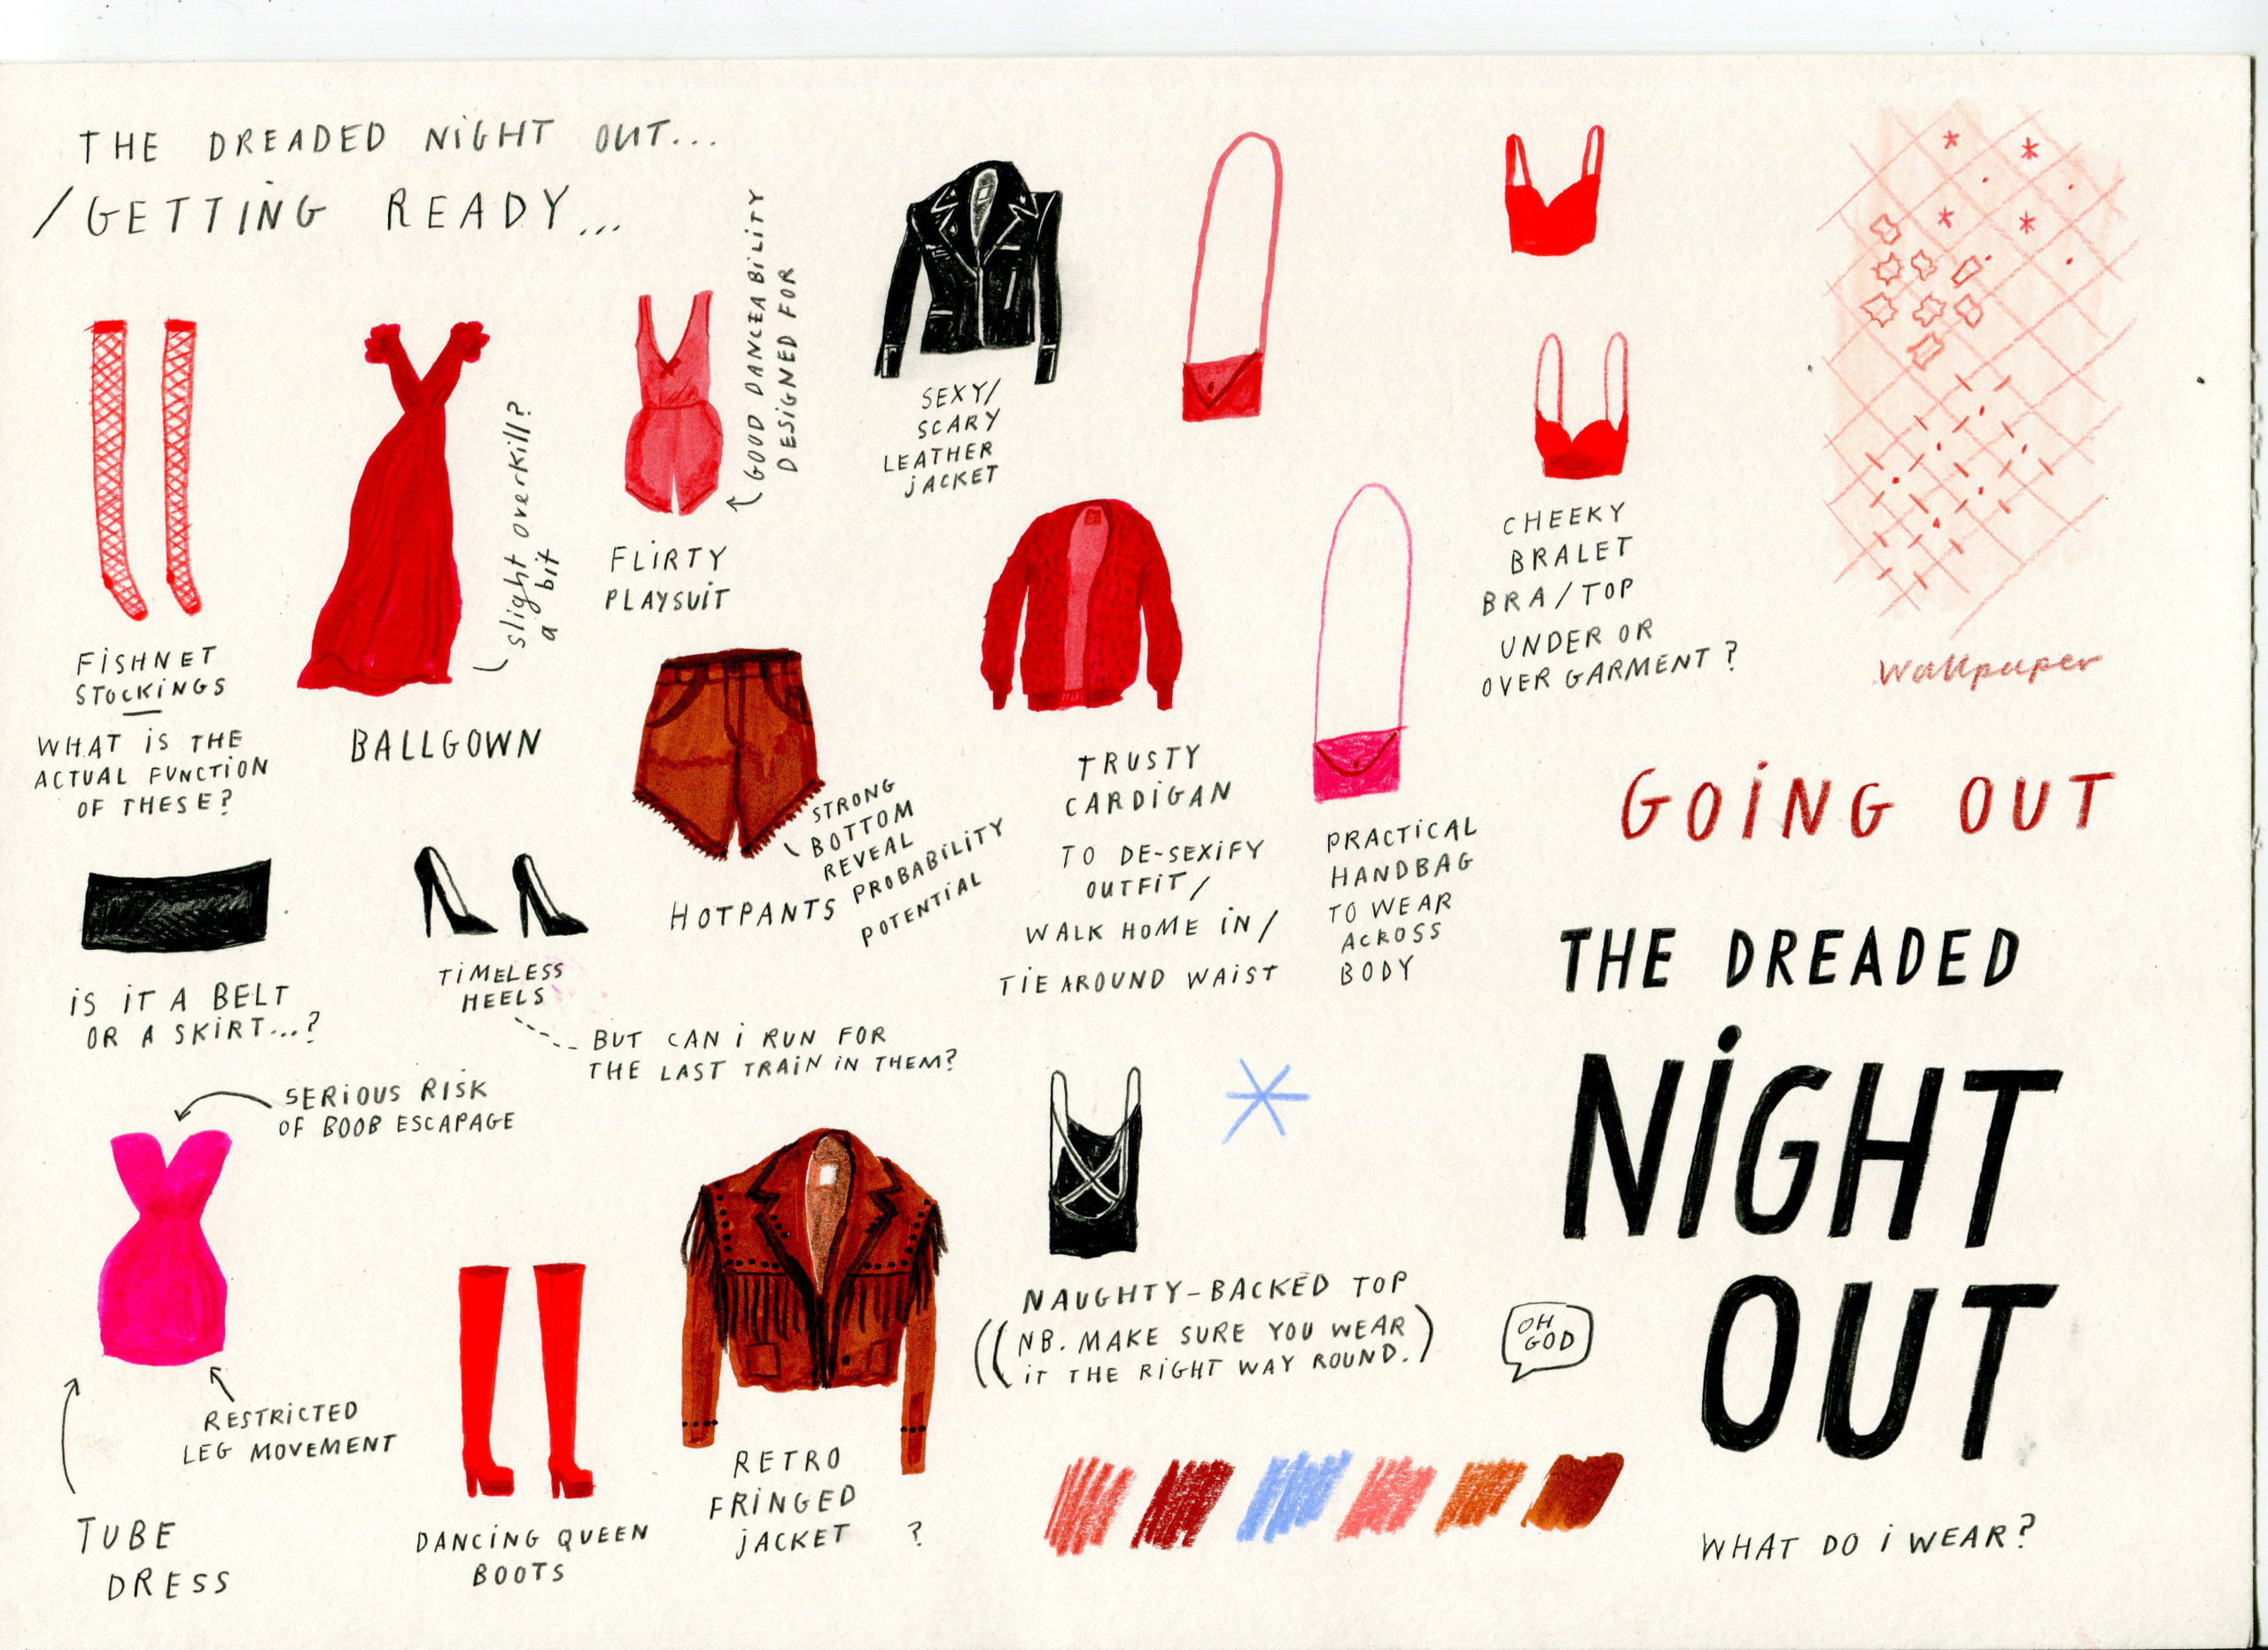 THE DREADED NiGHT OUT...
/GETTiNG READY...
FiSHNET
STOCKiNGS
WHAT iS THE
ACTUAL FUNCTiON
OF THESE?
slight overkill?
a bit
BALLGOWN
GOOD DANCEABiLiTY
DESiGNED FOR
FLiRTY
PLAYSUiT
SEXY/
SCARY
LEATHER
jACKET
CHEEKY
BRALET
BRA/TOP
UNDER OR
OVER GARMENT?
Wallpaper
STRONG
BOTTOM
REVEAL
PROBABiLiTY
POTENTiAL
HOTPANTS
TRUSTY
CARDiGAN
TO DE-SEXiFY
OUTFiT/
WALK HOME iN/
TiE AROUND WAiST
PRACTiCAL
HANDBAG
TO WEAR
ACROSS
BODY
GOiNG OUT
iS iT A BELT
OR A SKiRT...?
TiMELESS
HEELS
BUT CAN i RUN FOR
THE LAST TRAiN iN THEM?
SERiOUS RiSK
OF BOOB ESCAPAGE
RESTRiCTED
LEG MOVEMENT
TUBE
DRESS
DANCiNG QUEEN
BOOTS
RETRO
FRiNGED
jACKET ?
NAUGHTY-BACKED TOP
((NB. MAKE SURE YOU WEAR
iT THE RiGHT WAY ROUND.)
OH
GOD
THE DREADED
NiGHT
OUT
WHAT DO i WEAR?